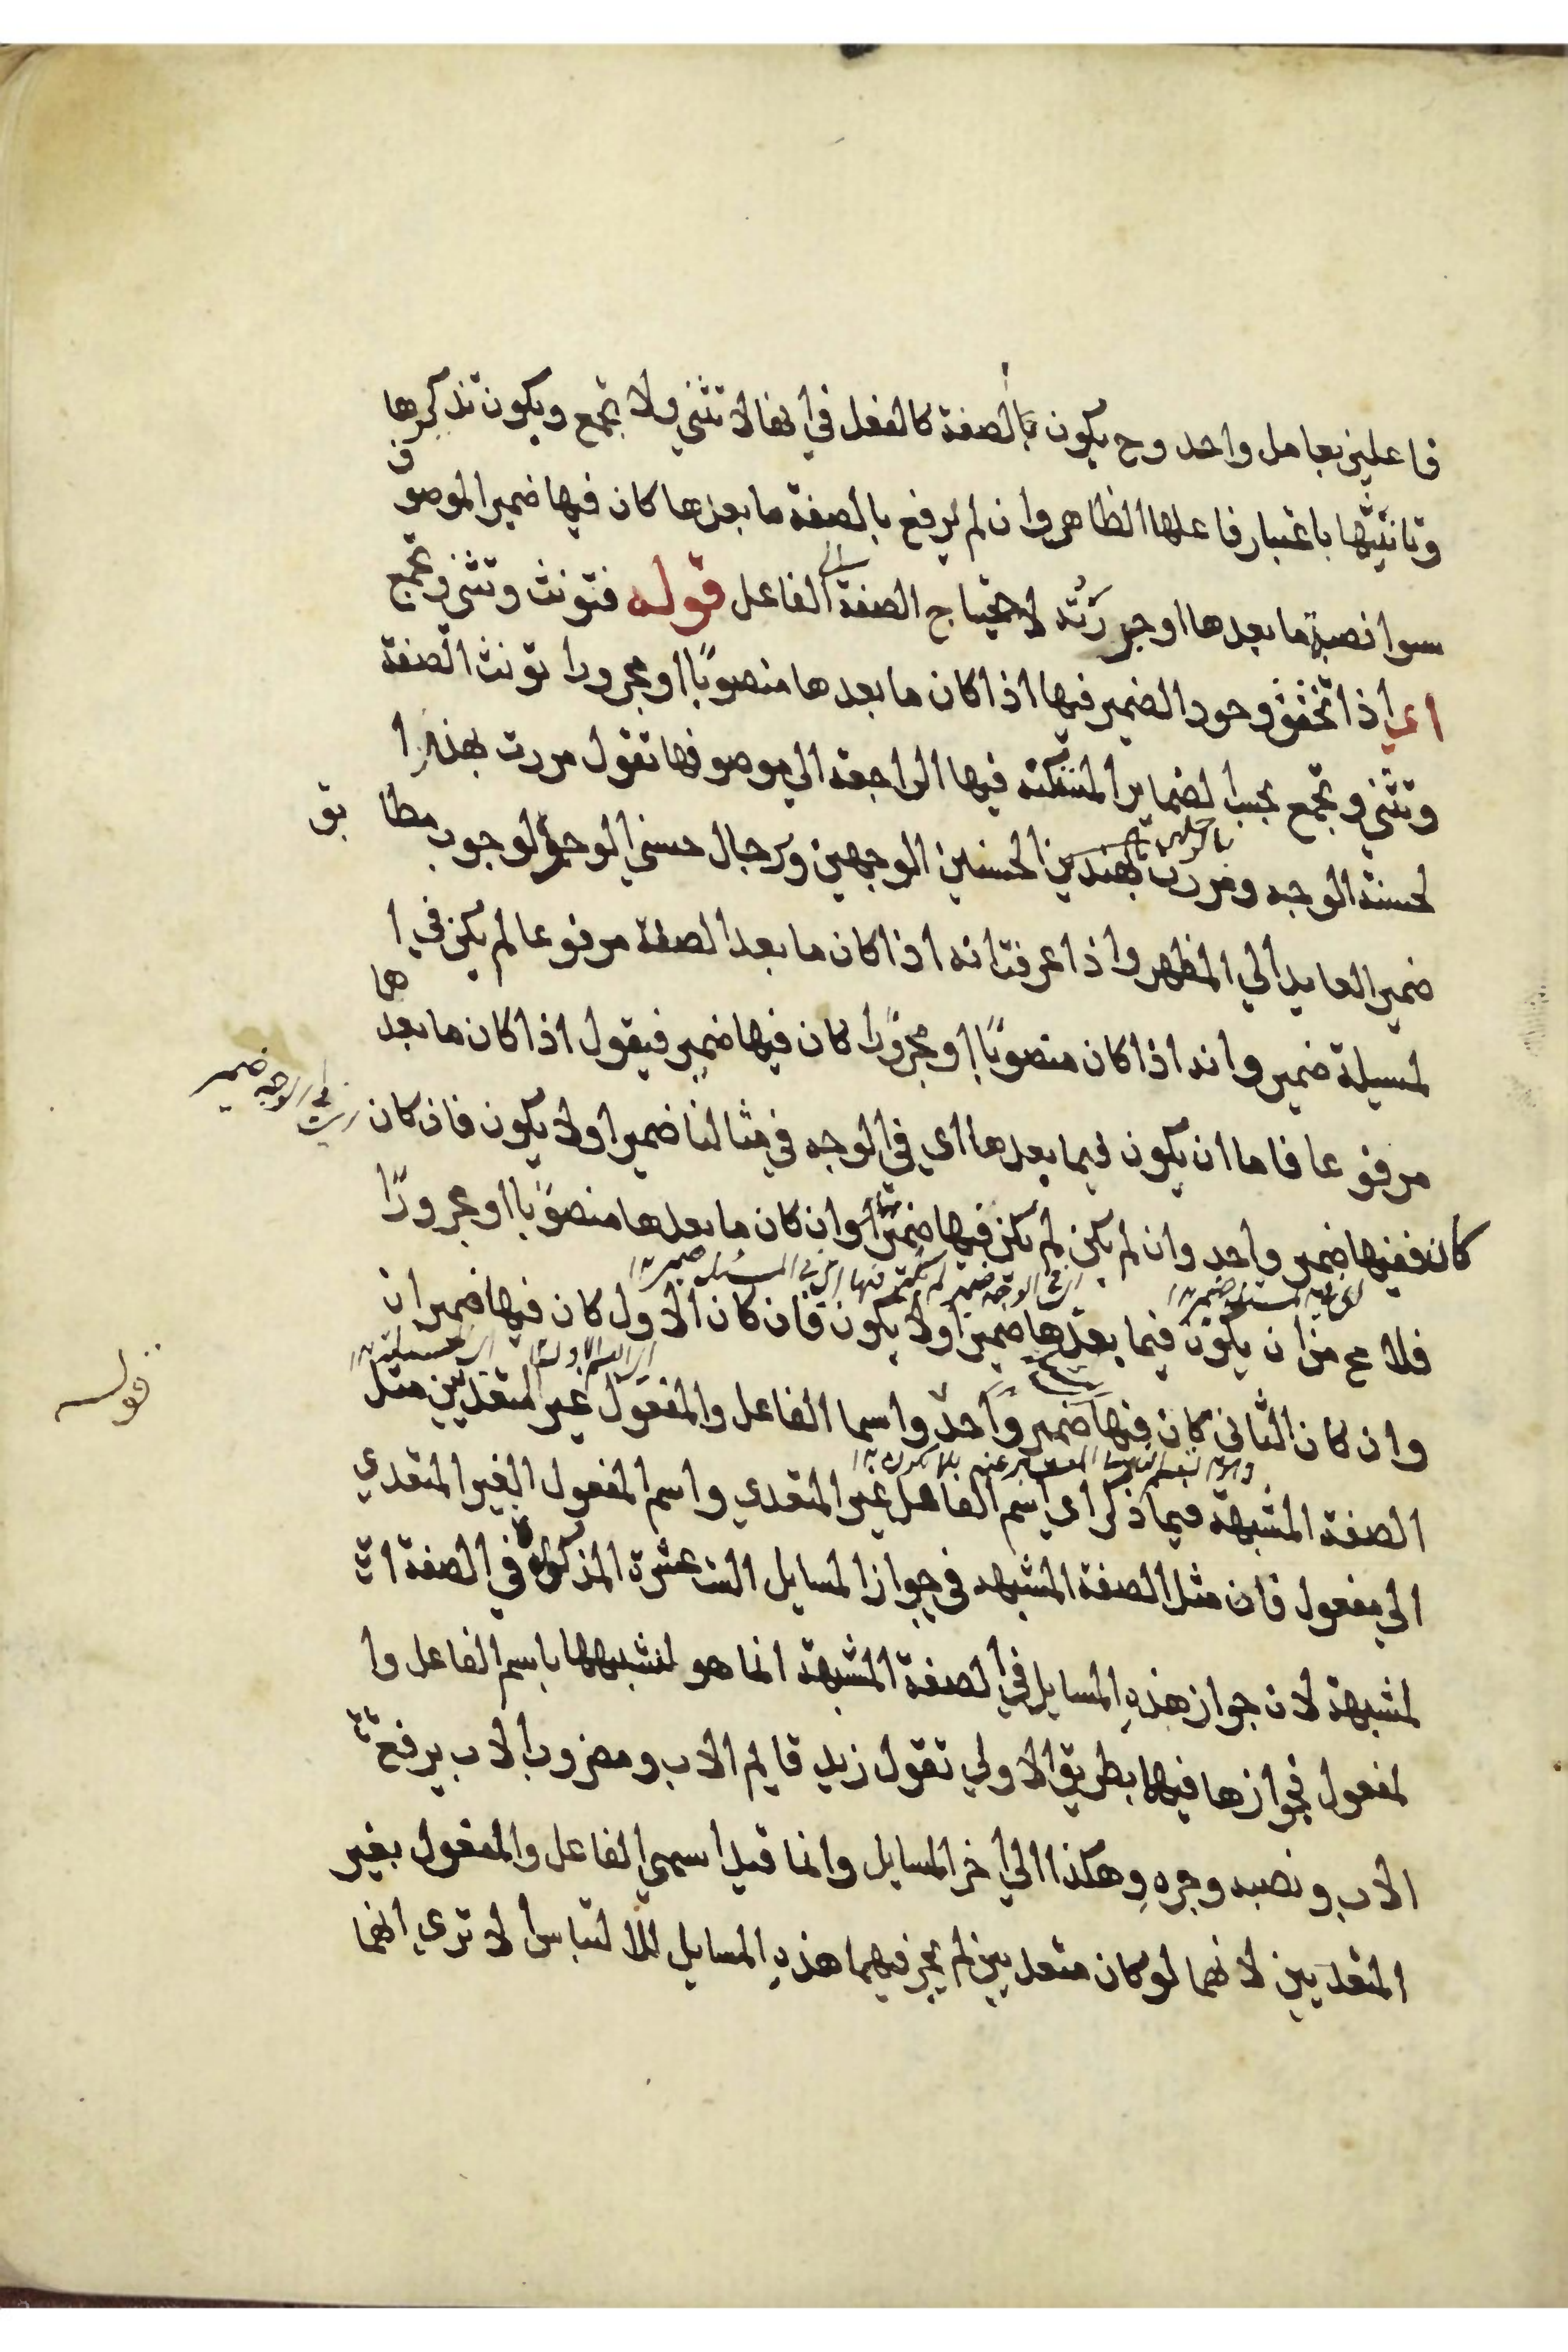 فاعلين بعامل واحد وح يكون بالصفة كالفعل في انها لا تثني ولا تجمع ويكون تذكيرها
وتانيثها باعتبار فاعلها الظاهر وان لم يرفع بالصفة ما بعدها كان فيها ضمير الموصوف
سوا نصبة ما بعدها او جررته لاحتياج الصفة الي الفاعل قوله فتونث وتثني وتجمع
اي اذا تحقق وجود الضمير فيها اذا كان ما بعدها منصوبًا او مجرورا تونث الصفة
وتثني وتجمع بحسب الضماير المستكنة فيها الراجعة الي موصوفها تقول مررت بهند ا
لحسنة الوجه ومررت بهندين الحسنين الوجهين وبرجال حسني الوجوه لوجوب مطابق
ضمير العايد الي المظهر واذا عرفت انه اذا كان ما بعد الصفة مرفوعا لم يكن في ا
لمسيلة ضمير وانه اذا كان منصوبًا او مجرورًا كان فيها ضمير فيقول اذا كان ما بعدها
مرفوعا فاما ان يكون فيما بعدها اي في الوجه في مثالنا ضمير اولا يكون فان كان
في الوجه ضمير
كان ففيها ضمير واحد وان لم يكن لم يكن فيها ضمير وان كان ما بعدها منصوبًا او مجرورًا
فلا يخ من ان يكون فيما بعدها ضمير اولا يكون فان كان الاول كان فيها ضميران
وان كان الثاني كان فيها ضمير واحد واسما الفاعل والمفعول غير المتعديين مثل
قوله
الصفة المشبهة فيما ذكر اي اسم الفاعل غير المتعدي واسم المفعول الغير المتعدي
الي مفعول فان مثل الصفة المشبهه في جواز المسايل الست عشرة المذكورة في الصفة ا
لمشبهة لان جواز هذهِ المسايل في الصفة المشبهة انما هو لتشبهها باسم الفاعل وا
لمفعول فجوازها فيهما بطريق الاولي تقول زيد قايم الاب ومضروب الاب يرفع
الاب ونصبه وجرهِ وهكذا الي اخر المسايل وانما قيد اسمي الفاعل والمفعول بغير
المتعديين لانهما لو كان متعديين لم يجز فيهما هذهِ المسايل للالتباس الا تري انهما